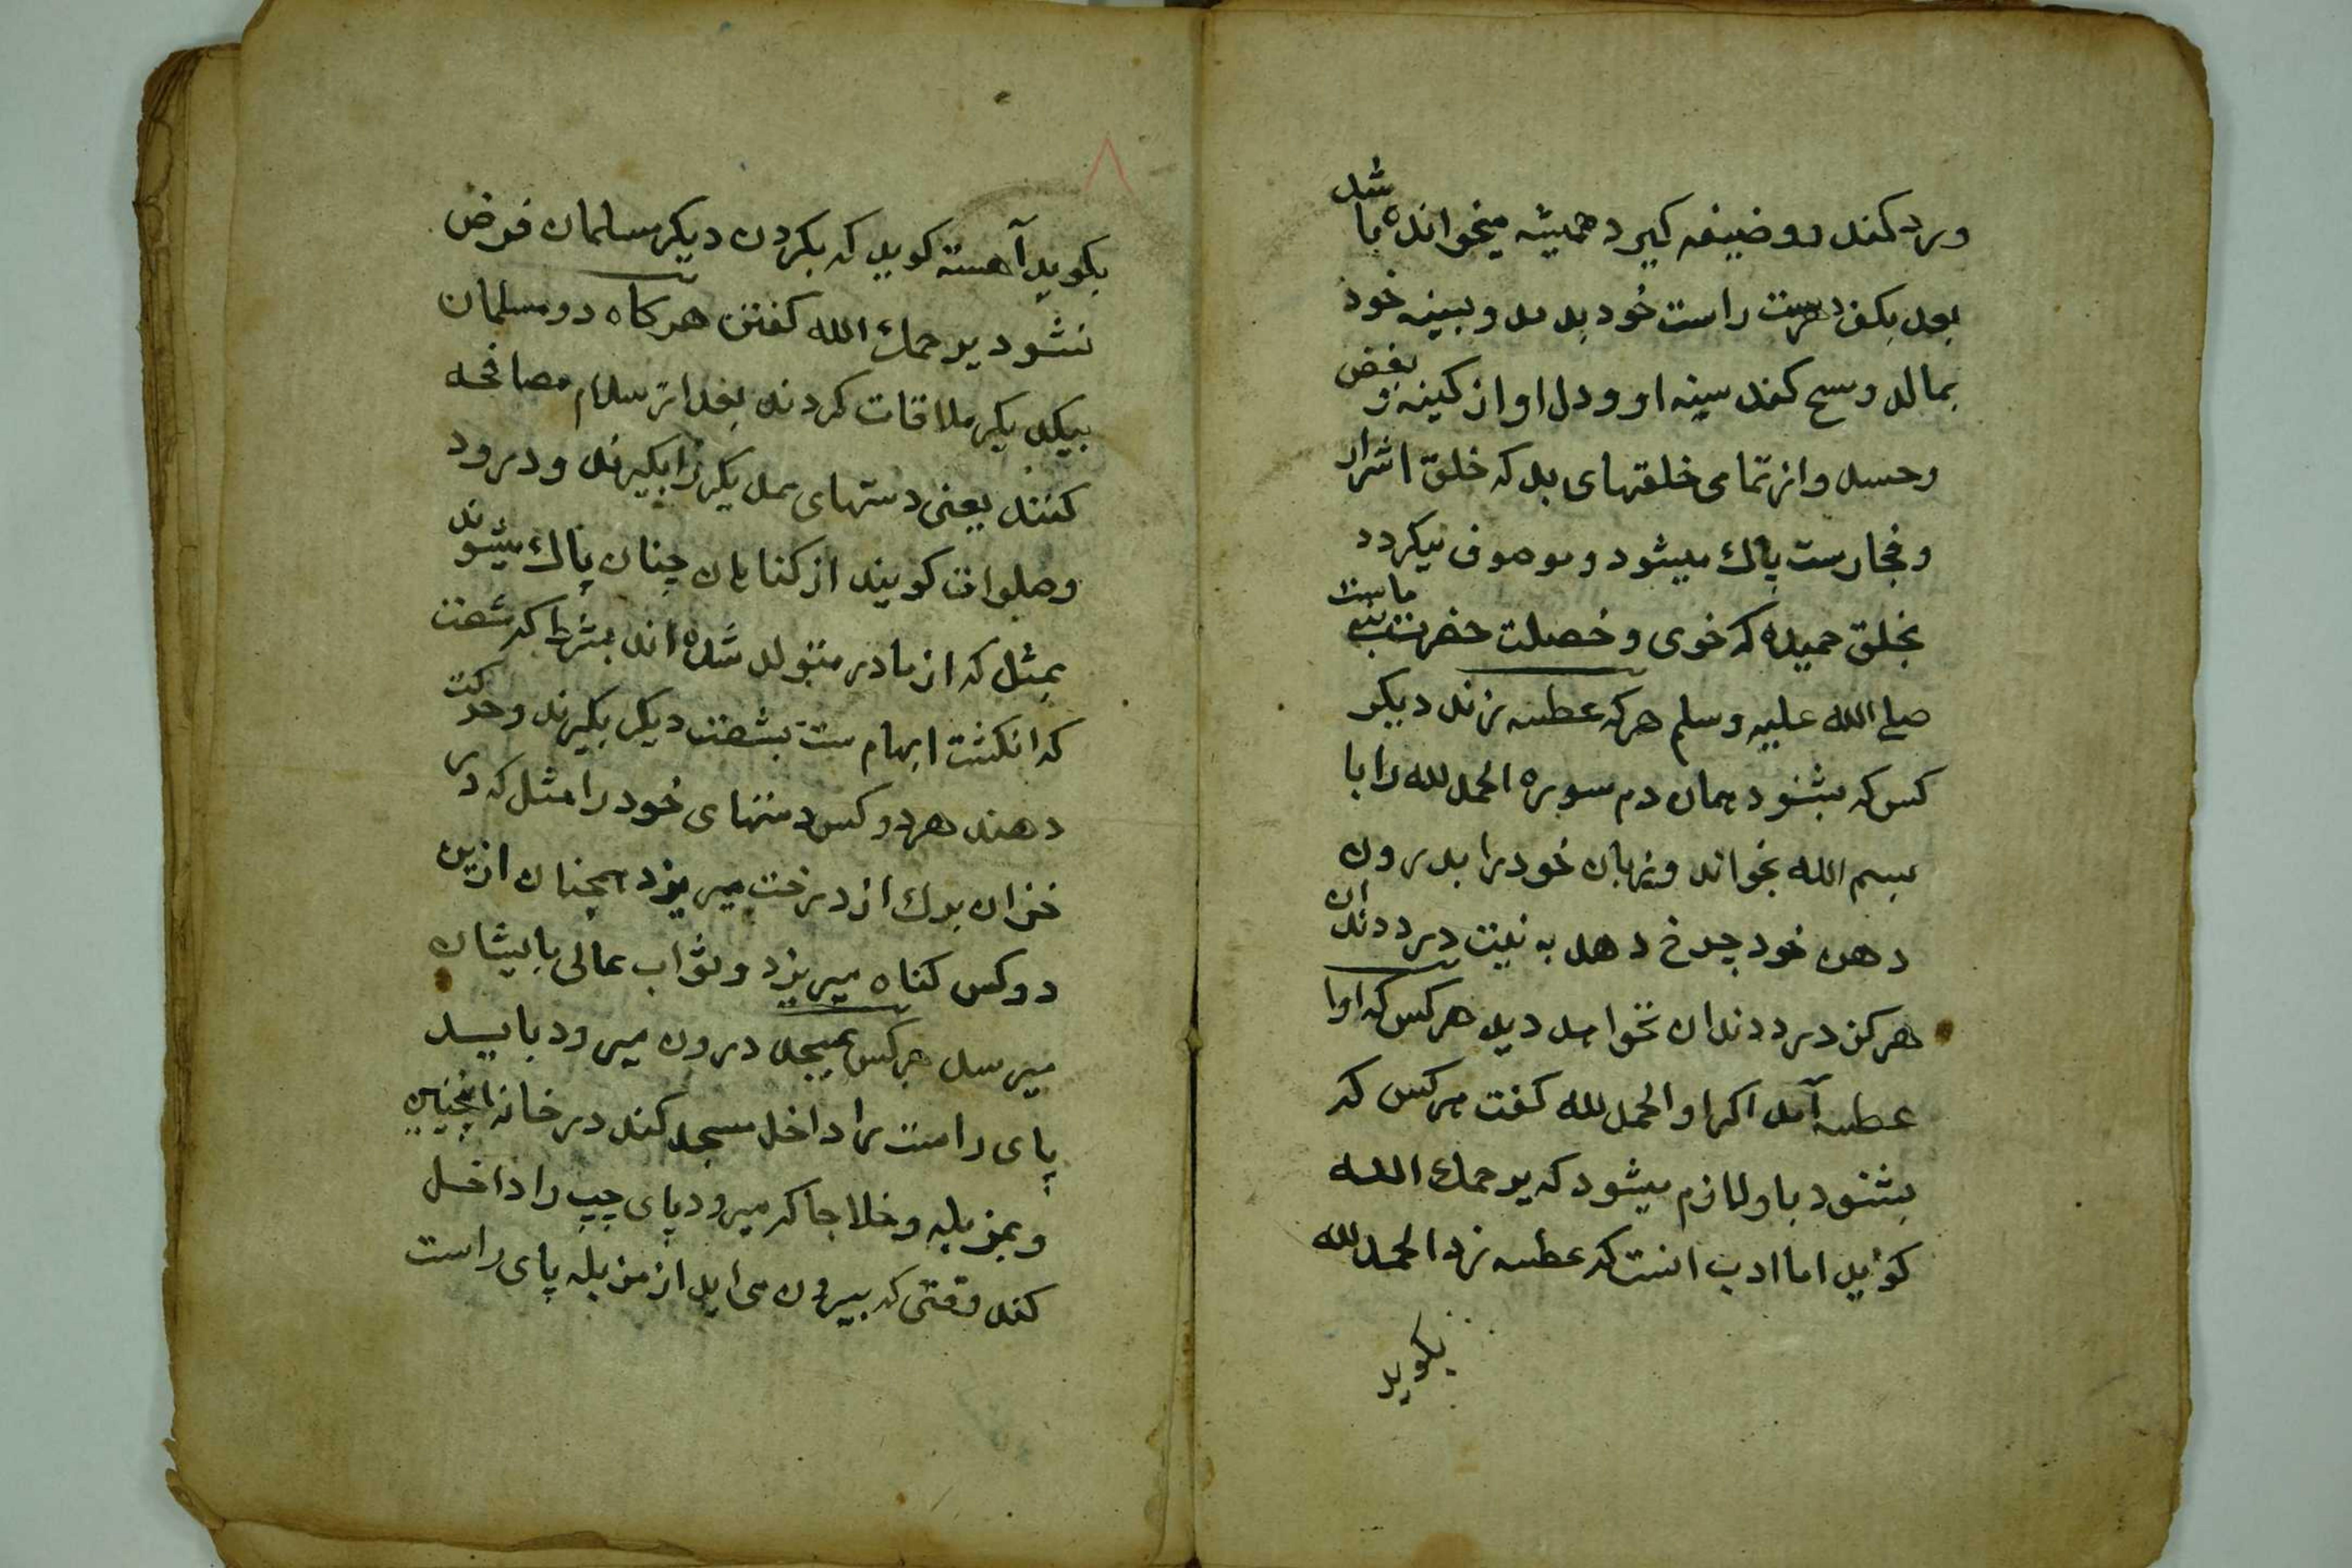 ورد کند و وضیفه کیرد همیشه میخوانده باشد
بعد بکف دست راست خود بدمد و بسینه خود
بمالد و مسح کند سینه او و دل او از کینه و بغض
و حسد و از تمامی خلقتهای بد که خلق اشرار
و فجارست پاک میشود و موصوف میکردد
بخلق حمیده که خوی و خصلت حضرت نبی ماست
صلی الله علیه وسلم هرکه عطسه زند دیکر
کس که بشنود همان دم سوره الحمد لله را با
بسم الله بخواند و زبان خود را بدرون
دهن خود چرخ دهد به نیت درد دندان
هرکز درد دندان نخواهد دید هرکس که اورا
عطسه آمد اکر او الحمد لله کفت هرکس که
بشنود باو لازم میشود که یرحمک الله
کوید اما ادب انست که عطسه زد الحمد لله
بکوید
۸
بکوید آهسته کوید که بکردن دیکر مسلمان فرض
نشود یرحمک الله کفتن هرکاه دو مسلمان
بیکدیکر ملاقات کردند بعد از سلام مصافحه
کنند یعنی دستهای همدیکر را بکیرند و درود
و صلوات کویند از کناهان چنان پاک میشوند
بمثل که از مادر متولد شده اند بشرط که شصت
که انکشت ابهام ست بشصت دیکر بکیرند و حرکت
دهند هردو کس دستهای خود را مثل که در
خزان برک از درخت میریزد همچنان ازین
دو کس کناه میریزد و ثواب عالی بایشان
میرسد هرکس بمسجد درون میرود باید
پای راست را داخل مسجد کند در خانه همچنین
و بمزبله و خلا جا که میرود پای چپ را داخل
کند وقتی که بیرون می اید از مزبله پای راست